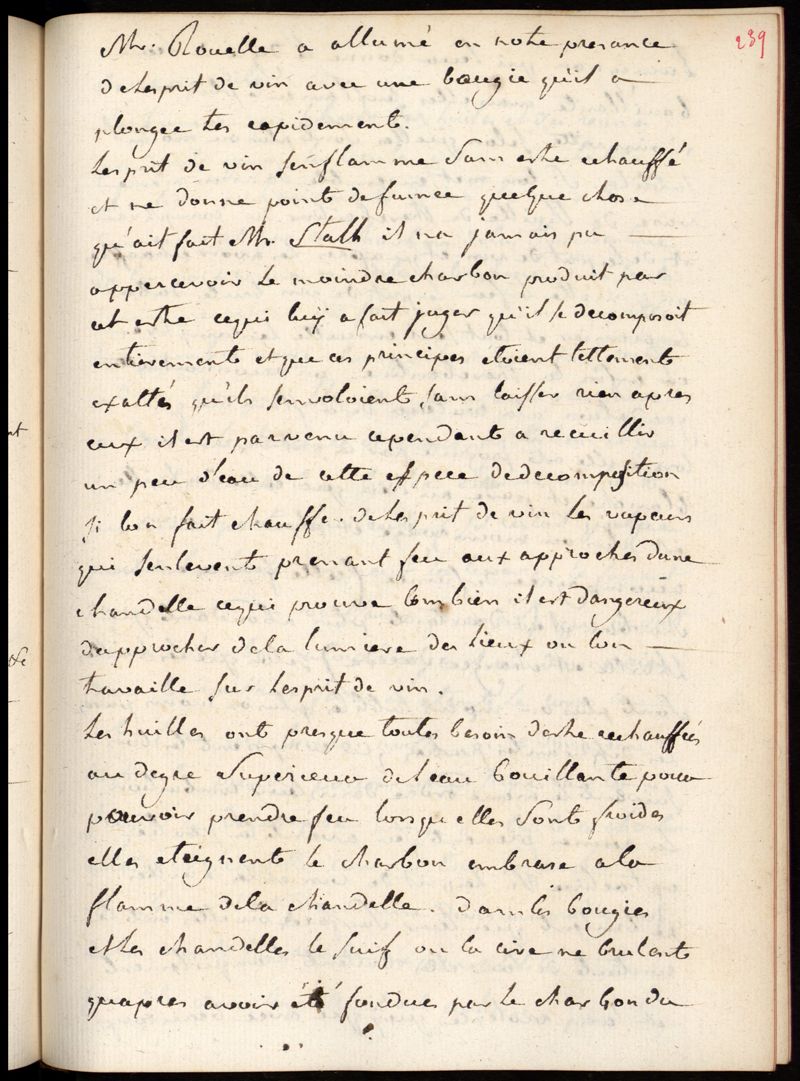 239
Mr. Rouelle a allumé en notre presance
de lesprit de vin avec une bougie qu'il a
plongee tres rapidement.
Lesprit de vin s'enflamme sans estre echauffé
et ne donne point de fumee quelque chose
qu'ait fait Mr. Stalh il na jamais pu
appercevoir le moindre charbon produit par
cet estre cequi luy a fait juger qu'il se decomposoit
entierement et que ces principes etoient tellement
exaltés qu'ils senvoloient sans laisser rien apres
eux il est parvenu cependant a recueillir
un peu d'eau de cette espece de decomposition
si lon fait chauffe. de lesprit de vin les vapeurs
qui senlevent prenant feu aux approches dune
chandelle cequi prouve combien il est dangereux
dapprocher dela lumiere des lieux ou lon
travaille sur lesprit de vin.
Les huilles ont presque toutes besoin destre echauffées
au degre superieur de leau bouillante pour
pouvoir prendre feu lorsquelles sont froides
elles eteignent le charbon embrase a la
flamme dela chandelle. dans les bougies
et les chandelles le suif ou la cire ne brulent
quapres avoir été fondues par le charbon du
nt